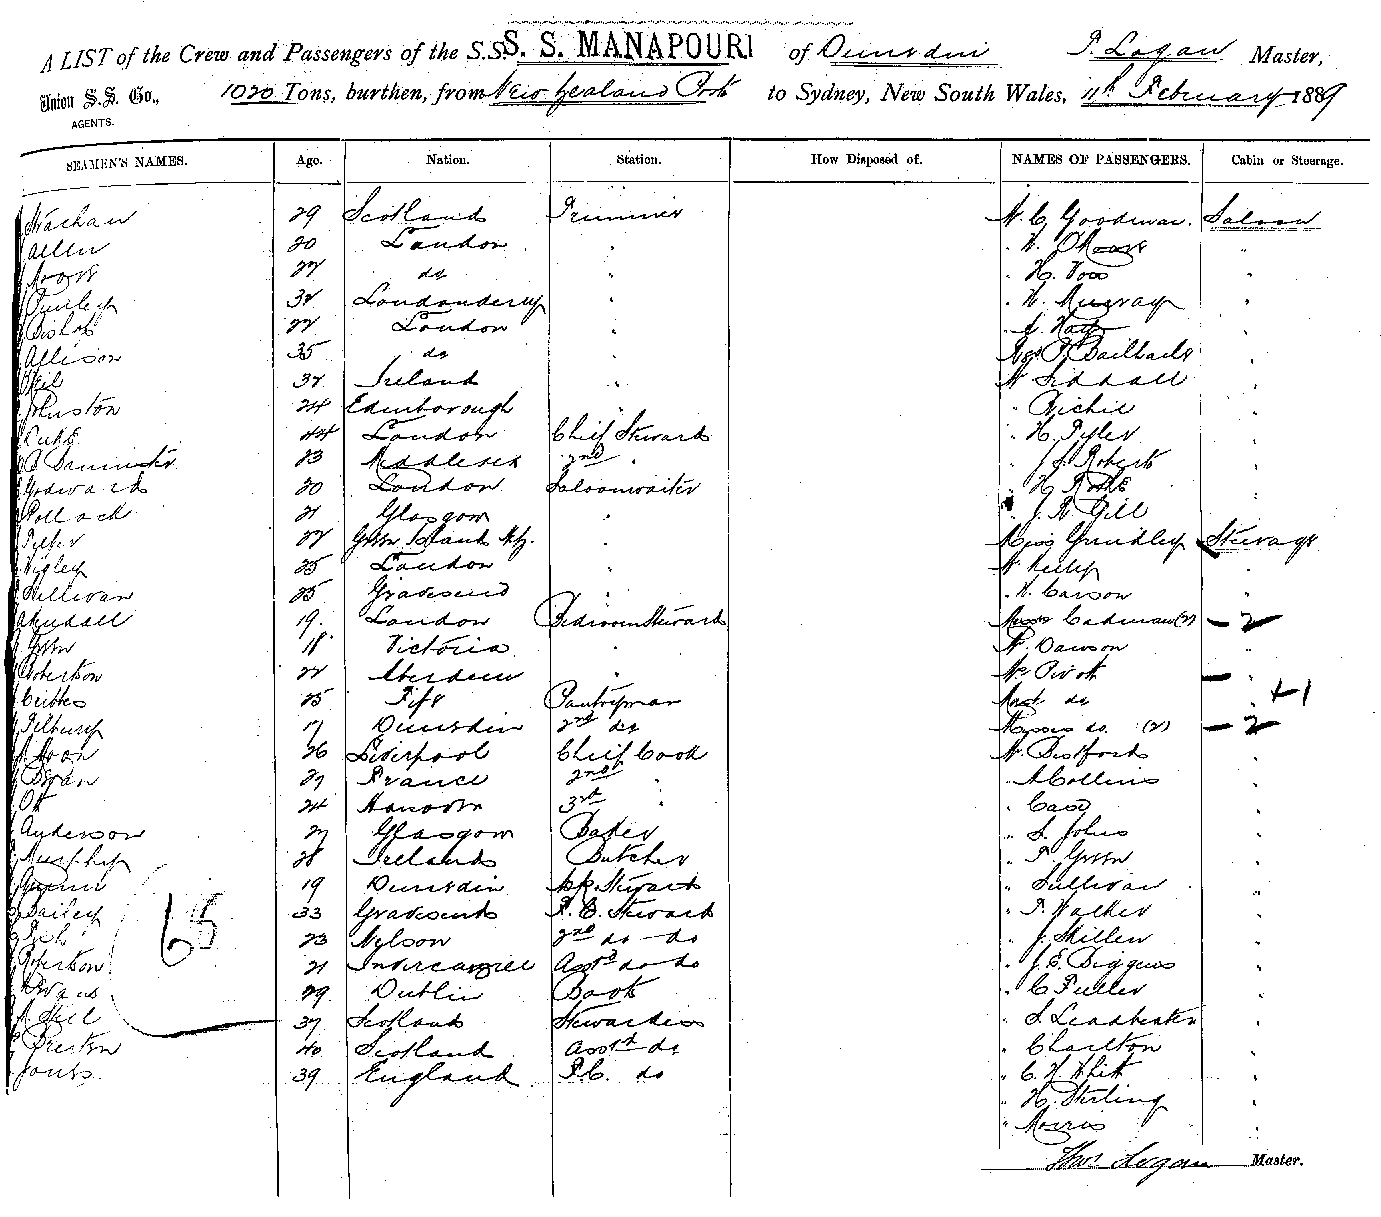 A LIST of the Crew and Passengers of the S.S. S. S. MANAPOURI of Dunedin T. Logan Master,
Union S.S. Co., 1020 Tons, burthen, from New Zealand Ports to Sydney, New South Wales, 11th February 1889
AGENTS.
SEAMEN'S NAMES. Age. Nation. Station. How Disposed of. NAMES OF PASSENGERS. Cabin or Steerage.
29 Scotland Trimmer Mr C Goodman Saloon
Allen 20 London " " "
Moore 22 do " " H. Voss "
32 Londonderry " " H. Murray "
Bishop 22 London "
Allison 35 do "
Neil 32 Ireland " Mr Siddall "
Johnston 24 Edinborough " " Richie "
44 London Chief Steward "
Bannister 23 Middlesex 2nd " " J. Roberts "
20 London Saloonwaiter "
Pollack 21 Glasgow " " J. R. Gill "
22 Green Island " Miss Grindley Steerage
25 London " Mr Kelly "
Sullivan 25 Gravesend " " H. Carson "
Kendall 19 London Bedroom Steward Cadman (2) – 2
Green 18 Victoria " Mr Dawson "
Robertson 22 Aberdeen " Mr Pivot –
25 Fife Pantryman Mast do " +1
Tilbury 17 Dunedin 2nd do Misses do (2) – 2
Moon 26 Liverpool Chief Cook Mr "
29 France 2nd " A Collins "
Ott 24 Hanover 3rd " " Casey "
Anderson 27 Glasgow Baker " S. Johns "
Murphy 28 Ireland Butcher " T Green "
19 Dunedin Steward " Sullivan "
Bailey 33 Gravesend F. C. Steward " T. Walker "
65 23 Nelson 2nd do do " J. Millen "
Robertson 21 Invercargill Asst do do " J. E. Diggins "
Evans 29 Dublin " C Fuller "
37 Scotland Stewardess " S. Leadbeater "
Preston 40 Scotland Asst do " Charlton "
Jones 39 England F.C. do " C. H. White "
" H. Sterling "
" Morris "
Thos Logan Master.